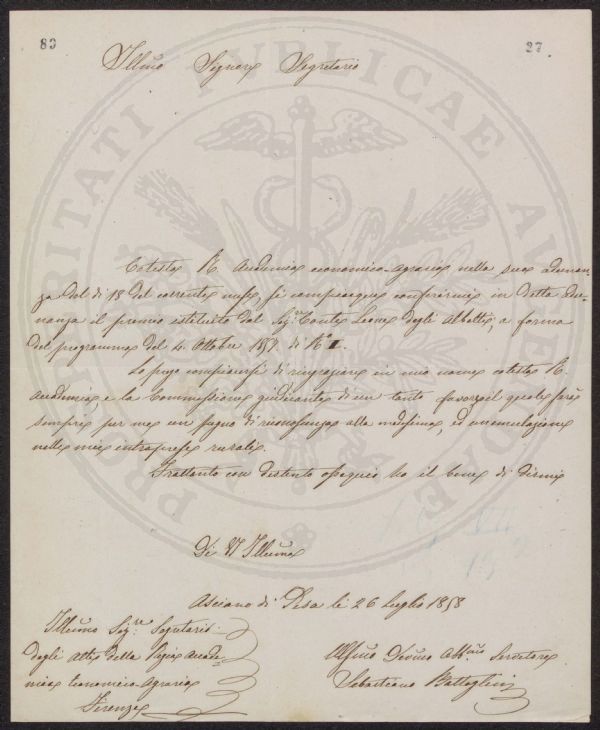 83
27.
Illmo Signore Segretario
Cotesta R. Accademia economico-agraria nella sua adunan-
za del dì 18 del corrente mese, si compiacque conferirmi in detta Adu-
nanza il premio istituito dal Sigr Conte Leone degli Albetti, a forma
del programma del 4. Ottobre 1857. di N° II.
La prego compiacersi di ringraziare in mio nome cotesta R.
Accademia, e la Commissione giudicante di un tanto favore il quale sarà
sempre per me un pegno di riconoscenza alla medesima, ed
nelle mie intraprese rurali.
Frattanto con distinto ossequio ho il bene di dirmi
Di V. Illma
Asciano di Pisa li 26 Luglio 1858
Illmo Sigre Segretario
degli Atti della Regia Accade-
mia Economico-Agraria
Firenze
Servitore
Sebastiano Battaglini
PROSPERITATI PUBLICAE AUGENDAE